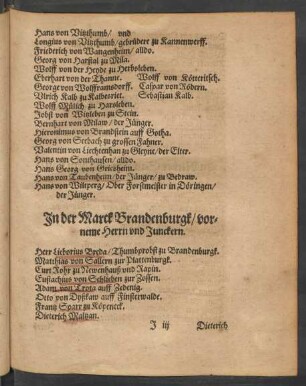 Hans von Vitzthumb/ und
Longius von Vitzthumb/gebrüder zu Kannenwerff.
Friederich von Wangenheim/ alldo.
Georg von Harstal zu Mila.
Wolff von der Heyde zu Herbsleben.
Eberhart von der Thanne. Wolff von Kötteritsch.
George von Wolfframsdorff. Caspar von Ködern.
Ulrich Kalb zu Kalbesriet. Sebastian Kalb.
Wolff Mülich zu Harsleben.
Jobst von Witzleben zu Stein.
Bernhart von Milaw/ der Jünger.
Hieronimus von Brandstein auff Gotha.
Georg von Seebach zu grossen Fahner.
Valentin von Liechtenhan zu Gleyne/ der Elter.
Hans von Sonthausen/ alldo.
Hans Georg von Griesheim.
Hans von Taubenheim/ der Jünger/ zu Bedraw.
Hans von Wilperg/ Ober Forstmeister in Döringen/
der Jünger.
In der Marck Brandenburgk/ vor-
neme Herrn und Junckern.
Herr Lieborius Breda/ Thumbprobst zu Brandenburgk.
Matthias von Saldern zur Plattenburgk.
Curt Rohr zu Newenhauß und
Eustachius von Schlieben zur Zossen.
Adam von Trota auff Zedenig.
Otto von Dyskaw auff Finsterwalde.
Frantz Sparr zu Köpenick.
Dieterich Maltzan.
J iij Dieterich